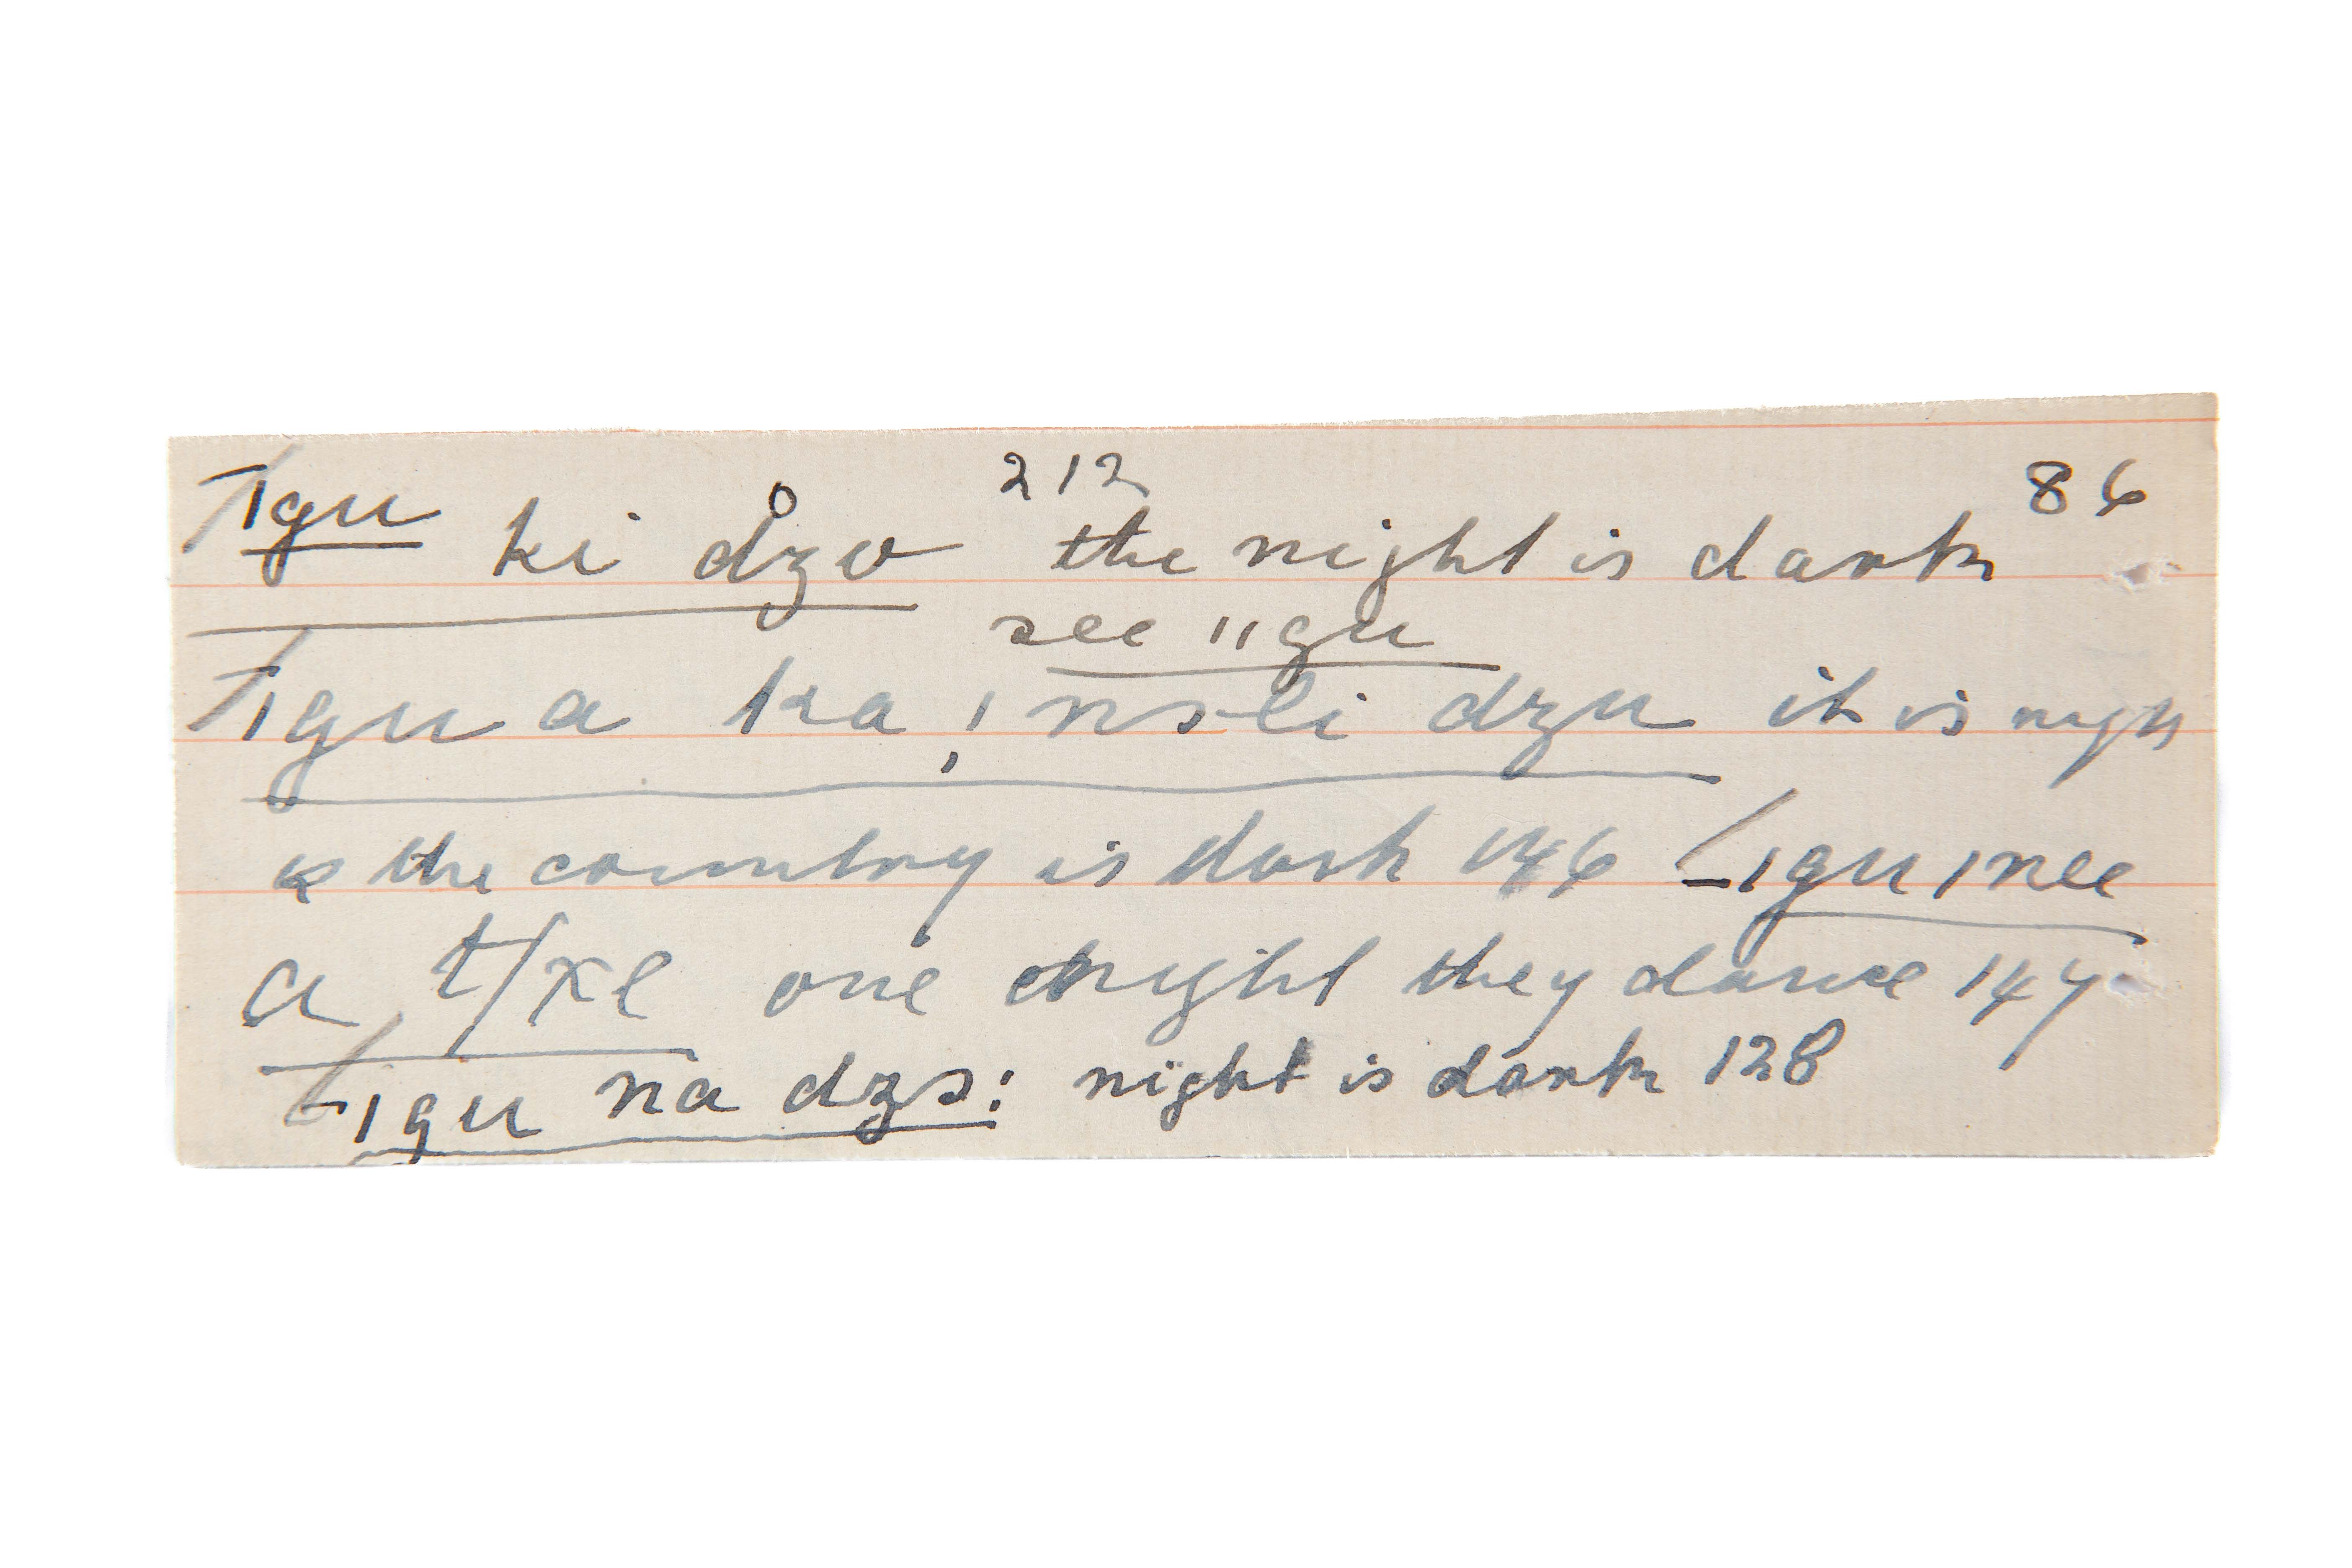 212 86
ˉ/ǀgu ki dz̊o the night is dark
see ǁgu
ˉ/ǀgu a ka, ǃnsli dzu it is nigh
& the country is dark 146 ˉ/ǀgu ǀnee
a t/xe one night they dance 147
ˉ/ǀgu na dzs: night is dark 128